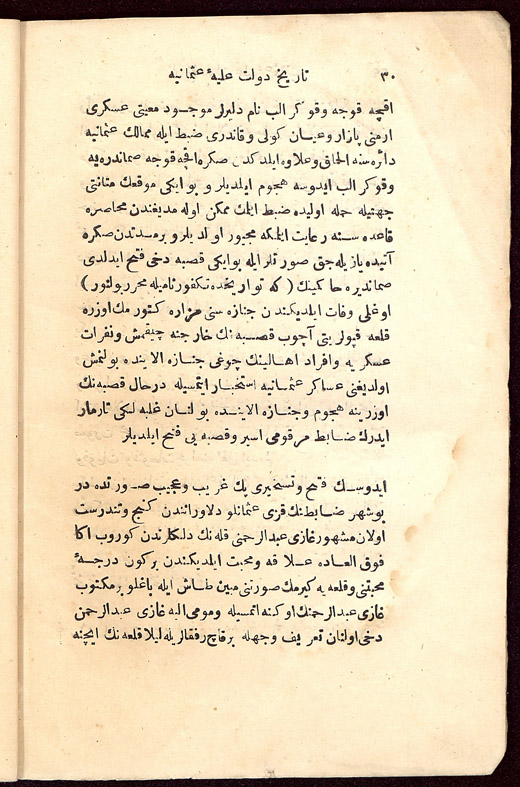 ٣٠
تاريخ دولت عليهٔ عثمانيه
اقچه قوجه وقوكر الب نام دلبرلر موجود معيتى عسكرى
ارمنى پازار وعيان كولى وقاندرى ضبط ايله ممالك عثمانيه
دائره سنه الحاق وعلاوه ايلدكدن صكره اقچه قوجه صماندره يه
وقوكر الب ايدوسه هجوم ايلديلر و بو ايكى موقعك متانتى
جهتيله حمله اوليده ضبط ايتمك ممكن اوله مديغندن محاصره
قاعده سنه رعايت ايتمكه مجبور اولديلر و بر مدتدن صكره
آتيده يازيله جق صورتلر ايله بو ايكى قصبه دخى فتح ايدلدى
صماندره حاكمينك ( كه تواريخده تكفور ناميله محرر بولنور )
اوغلى وفات ايلديكندن جنازه سنى مزاره كتورمك اوزره
قلعه قپولرينى آچوب قصبه نك خارجنه چيقمش ونفرات
عسكريه وافراد اهالينك چوغى جنازه الاينده بولنمش
اولديغى عساكر عثمانيه استخبار ايتمسيله درحال قصبه نك
اوزرينه هجوم وجنازه الاينده بولنان غلبه لكى تارمار
ايدرك ضابط مرقومى اسير وقصبه يى فتح ايلديلر
ايدوسك فتح وتسخيرى پك غريب وعجيب صورتده در
بو شهر ضابطنك قزى عثمانلو دلاوراتندن كنج وتندرست
اولان مشهور غازى عبدالرحمنى قله نك دلكلرندن كوروب اكا
فوق العاده علاقه ومحبت ايلديكندن بركون درجهٔ
محبتنى وقلعه يه كيرمك صورتنى مبين طاش ايله باغلو بر مكتوب
غازى عبدالرحمنك اوكنه اتمسيله ومومى اليه غازى عبدالرحمن
دخى اولنان تعريف وجهله برقاچ رفقالريله ليلا قلعه نك ايچنه